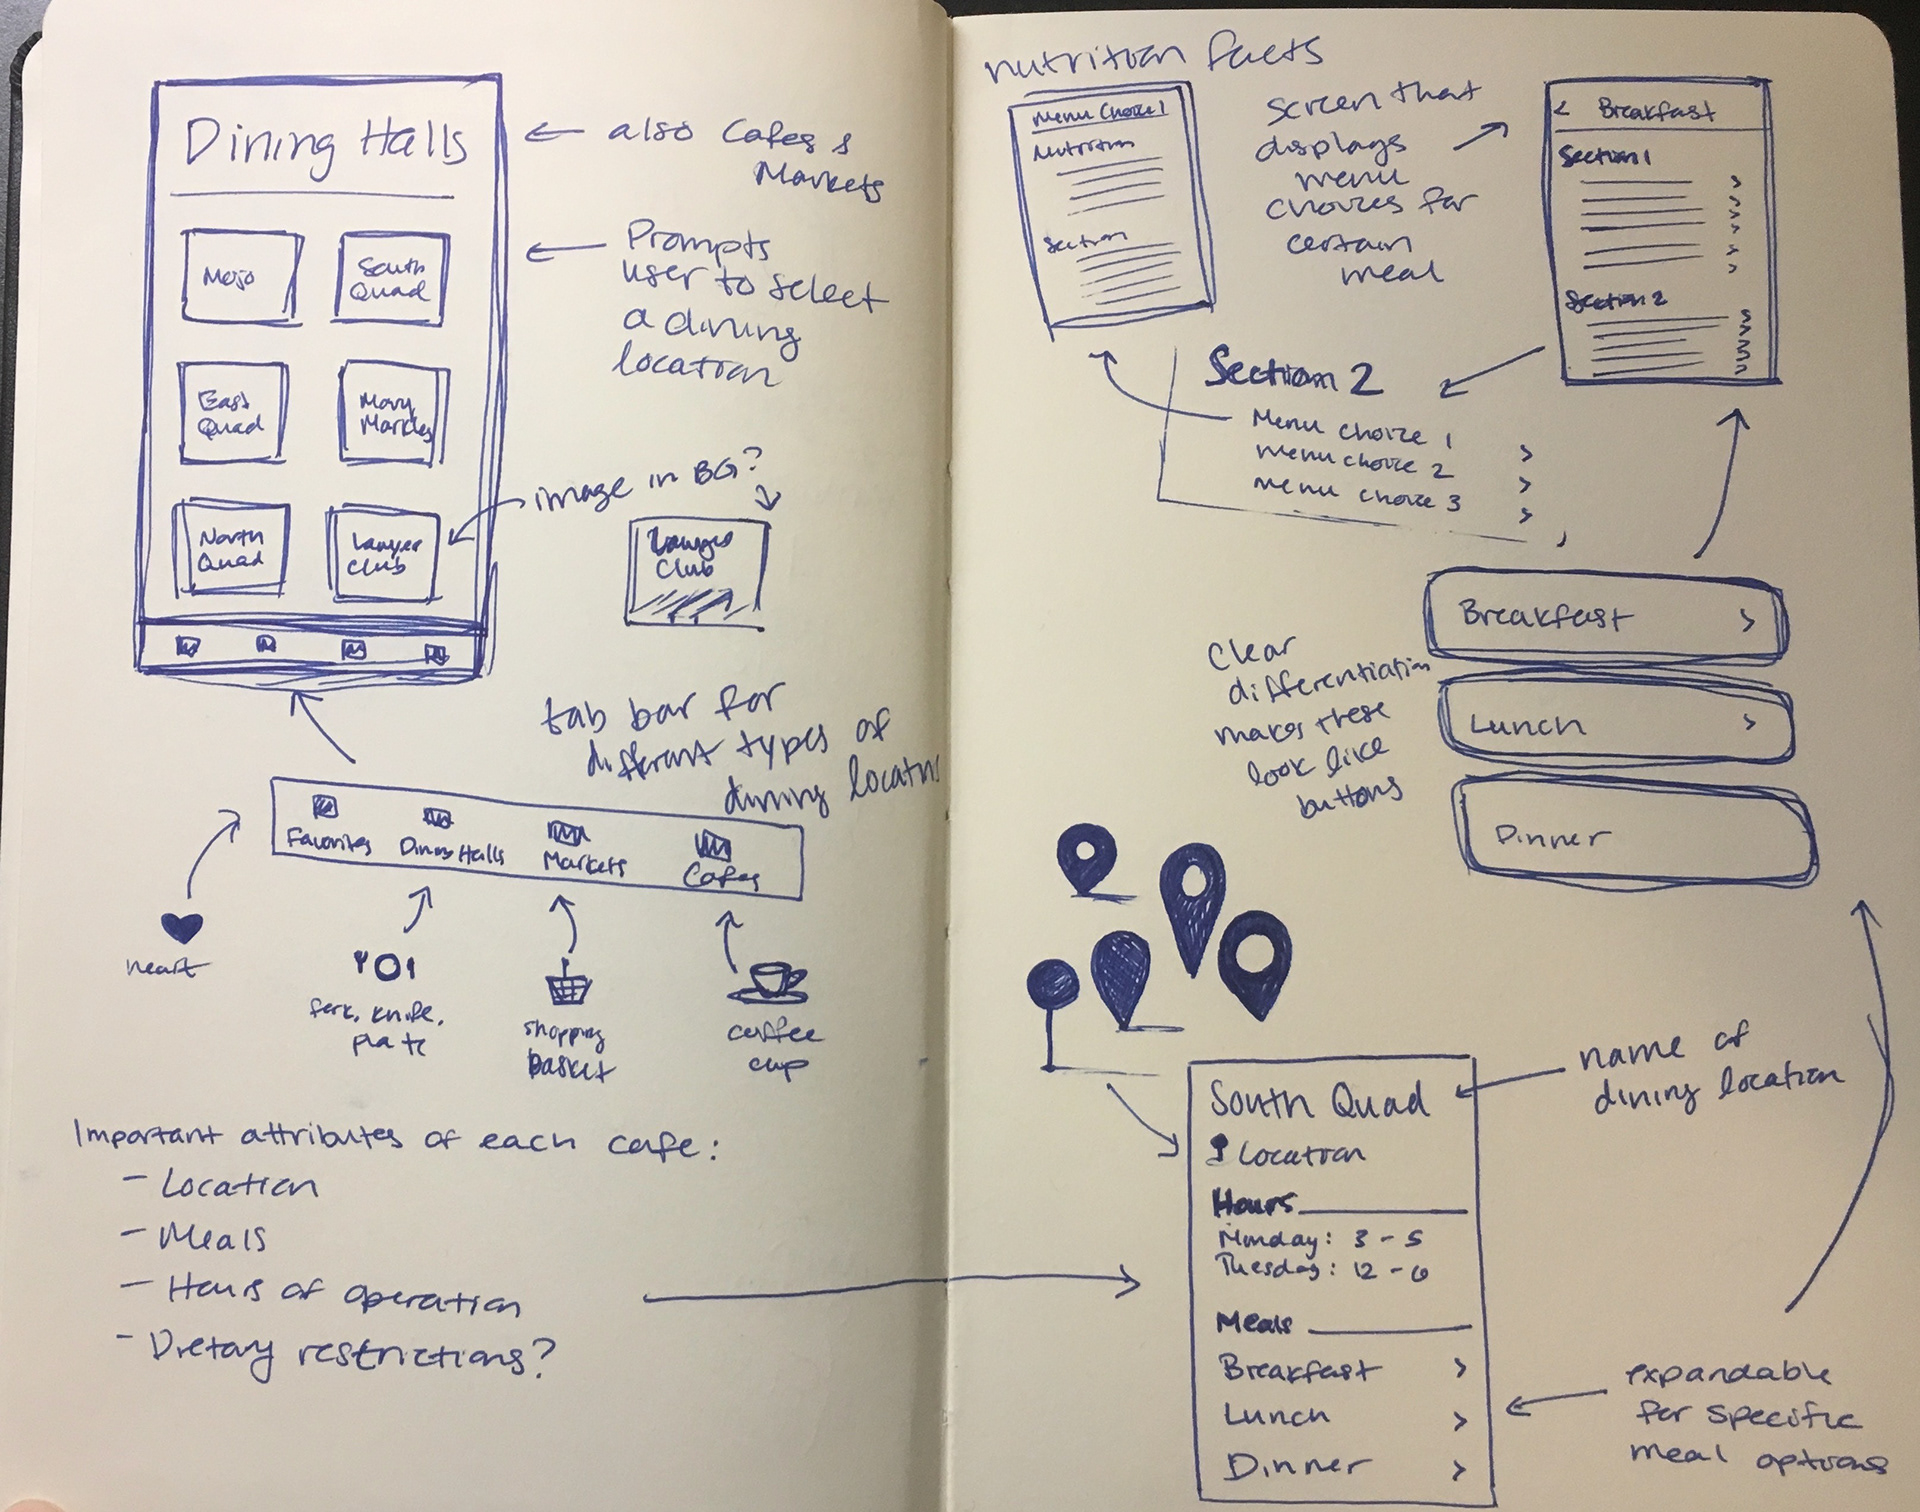 Dining Halls
also Cafes &
Markets
Prompts
user to select
a dining
location
Mojo
South
Quad
East
Quad
Mary
Markley
North
Quad
Lawyer
Club
image in BG?
Lawyer
Club
tab bar for
different types of
dining locatns
Favorites
Dining Halls
Markets
Cafes
heart
fork, knife,
plate
shopping
basket
coffee
cup
Important attributes of each cafe:
- Location
- Meals
- Hours of operation
- Dietary restrictions?
nutrition facts
Menu Choice 1
Nutrition
Section
Screen that
displays
menu
choices for
certain
meal
< Breakfast
Section 1
Section 2
Section 2
Menu choice 1 >
menu choice 2 >
menu choice 3 >
Breakfast >
Lunch >
Dinner
Clear
differentiation
makes these
look like
buttons
South Quad
Location
Hours
Monday: 3 - 5
Tuesday: 12 - 6
Meals
Breakfast >
Lunch >
Dinner >
name of
dining location
expandable
for specific
meal options